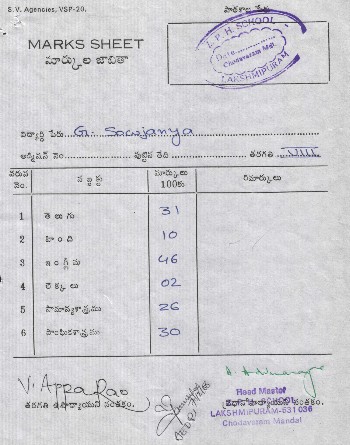 S.V. Agencies, VSP-20.
పాఠశాల పేరు
MARKS SHEET
మార్కుల జాబితా
Z. P. H. SCHOOL
Date
Chodavaram Mdl.
LAKSHMIPURAM
విద్యార్థి పేరు G. Sowjanya
అడ్మిషన్ నెం. పుట్టిన తేది తరగతి VIII
వరుస నెం. సబ్జక్టు మార్కులు 100కు రిమార్కులు
1 తెలుగు 31
2 హింది 10
3 ఇంగ్లీషు 46
4 లెక్కలు 02
5 సామాన్యశాస్త్రము 26
6 సాంఘికశాస్త్రము 30
V. Appa Rao
తరగతి ఉపాధ్యాయుని సంతకం.
Head Master
SCHOOL
LAKSHMIPURAM-531 036
Chodavaram Mandal